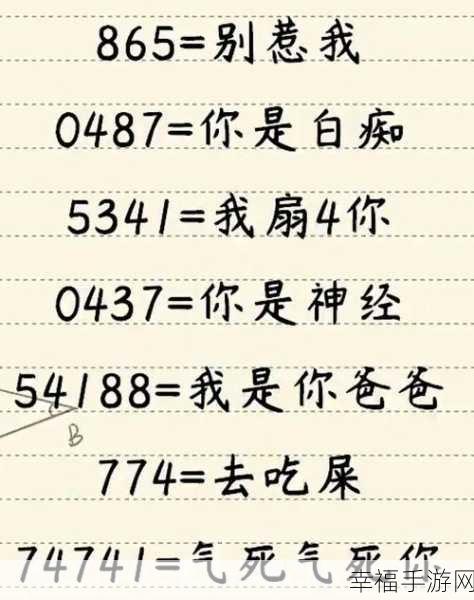 865=别惹我
0487=你是白痴
5341=我扇4你
0437=你是神经
54188=我是你爸爸
B
774=去吃屎
74741=气死气死你
幸福手游网